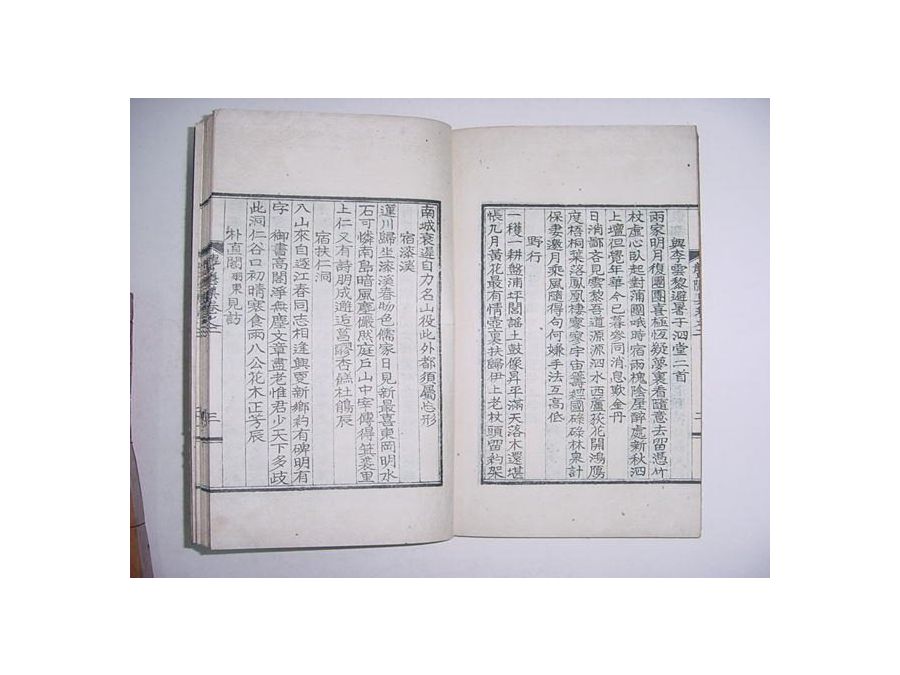 與李雲黎避暑于泗堂二首
兩家明月復團團喜極恆疑夢裏看隨意去留憑竹
杖虛心臥起對蒲團哦時宿雨槐陰歷辭處新秋泗
上壇但覺年華今已暮參同消息歎金丹
日消鄙吝見雲黎吾道源源泗水西蘆荻花開鴻鴈
度梧桐葉落鳳凰棲寥寥宇宙籌經國碌碌林泉計
保妻邀月乘風隨得句何嫌手法互高低
野行
一穫一耕盤浦坪閭謠土鼓像昇平滿天落木還堪
帳九月黃花最有情壺裏扶歸伊上老杖頭留約架
南城衰遲自力名山役此外都須屬忘形
宿漆溪
蓮川歸坐漆溪春物色儒家日見新最喜東岡明水
石可憐南島暗風塵儼然庭戶山中宰傳得箕裘里
上仁又有詩朋成邂逅菖醪杏餻杜鵑辰
宿扶仁洞
八山來自逐江春同志相逢興更新鄉約有碑明有
字 御書高閣淨無塵文章盡老惟君少天下多歧
此洞仁谷口初晴寒食雨八公花木正芳辰
朴直閣 見訪
二
三